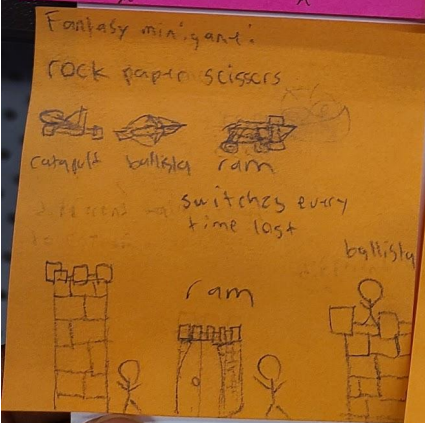 Fantasy minigame:
rock paper scissors
catapult ballista ram
switches every
time lost
ballista
ram